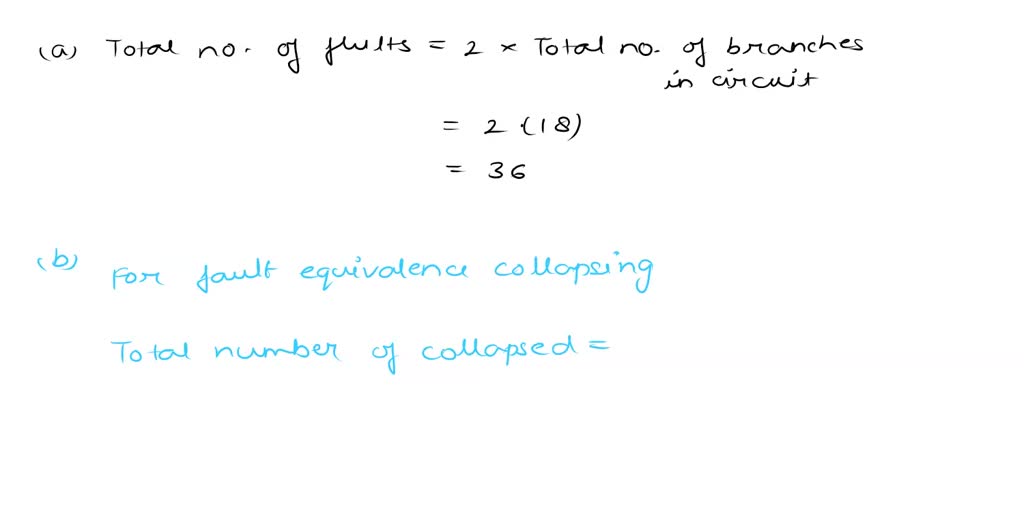 (a) Total no. of fults = 2 × Total no. of branches
in circuit
= 2 (18)
= 36
(b) For fault equivalence collapsing
Total number of collapsed =